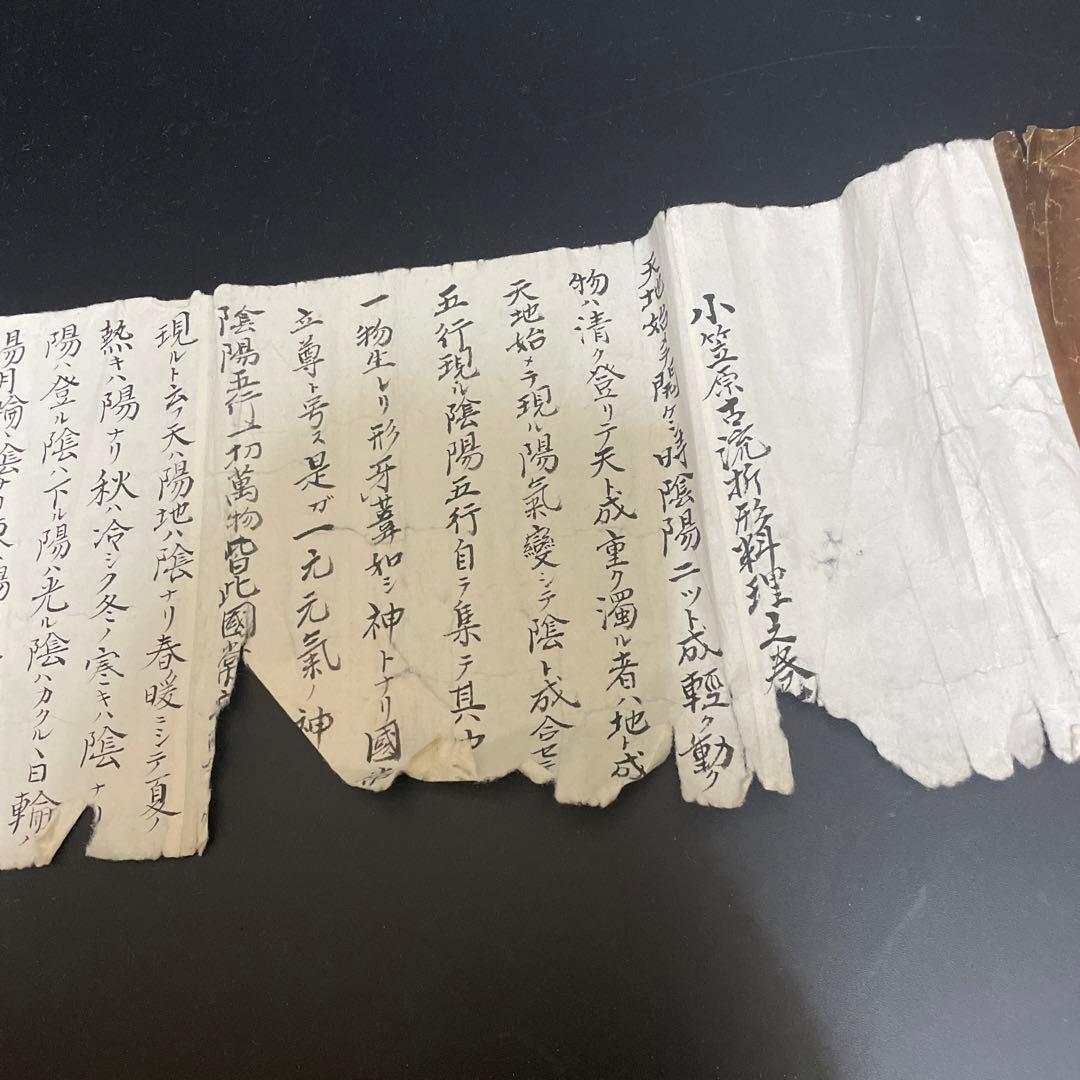 小笠原古流折形料理之巻
天地始メテ開ケシ時陰陽ニツト成軽ク動ク
物ハ清ク登リテ天ト成重ク濁ル者ハ地ト成
天地始メテ現ル陽氣變シテ陰ト成合セ
五行現ル陰陽五行自ラ集テ其ハ
一物生レリ形牙葦如シ神トナリ國
立尊ト号ス是ガ一元元氣ノ神
陰陽五行一切萬物皆此國常
現ルト云フ天ハ陽地ハ陰ナリ春ノ暖ニシテ夏ノ
熱キハ陽ナリ秋ハ冷シク冬ノ寒キハ陰ナリ
陽ハ登ル陰ハ下ル陽ハ光ル陰ハカクルヽ日輪ノ
陽月輪